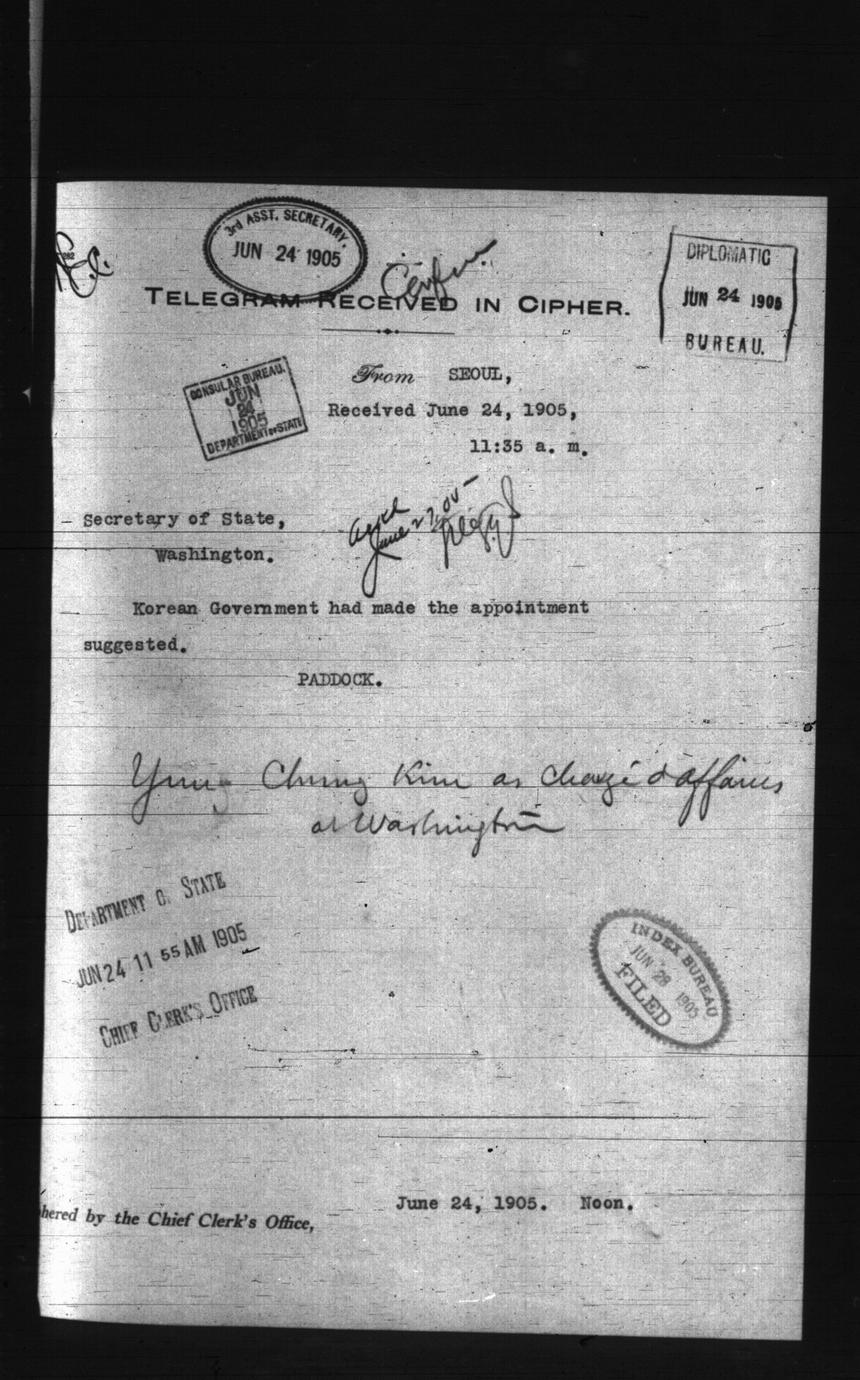 3rd ASST. SECRETARY.
JUN 24 1905
TELEGRAM RECEIVED IN CIPHER.
DIPLOMATIC
JUN 24 1905
BUREAU.
CONSULAR BUREAU.
JUN
24
1905
DEPARTMENT OF STATE
From SEOUL,
Received June 24, 1905,
11:35 a. m.
Secretary of State,
Washington.
June 27, 05
Korean Government had made the appointment
suggested.
PADDOCK.
Yung Chung Kim as chargé d'affaires
at Washington
DEPARTMENT OF STATE
JUN 24 11 55 AM 1905
CHIEF CLERK'S OFFICE
INDEX BUREAU
JUN 28 1905
FILED
hered by the Chief Clerk's Office,
June 24, 1905. Noon.